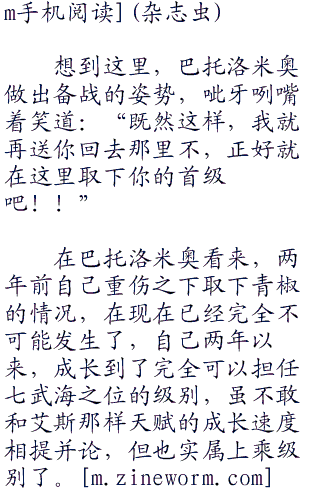 m手机阅读](杂志虫)
想到这里，巴托洛米奥
做出备战的姿势，呲牙咧嘴
着笑道：“既然这样，我就
再送你回去那里不，正好就
在这里取下你的首级
吧！！”
在巴托洛米奥看来，两
年前自己重伤之下取下青椒
的情况，在现在已经完全不
可能发生了，自己两年以
来，成长到了完全可以担任
七武海之位的级别，虽不敢
和艾斯那样天赋的成长速度
相提并论，但也实属上乘级
别了。[m.zineworm.com]